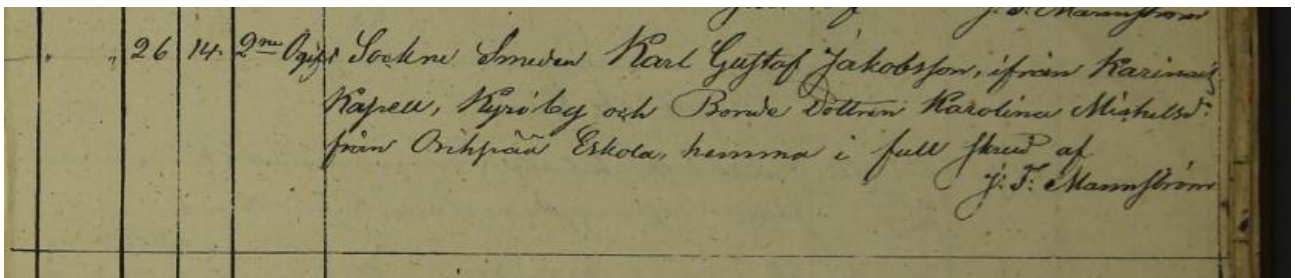 J. F. Mannström
" " 26 14. 2ne Ogift Sockne Smeden Karl Gustaf Jakobsson, ifrån Karinais
Kapell, Kyrö by och Bonde Dottren Karolina Michelsd:
från Orihpää Eskola, hemma i full skrud af
J: F: Mannström